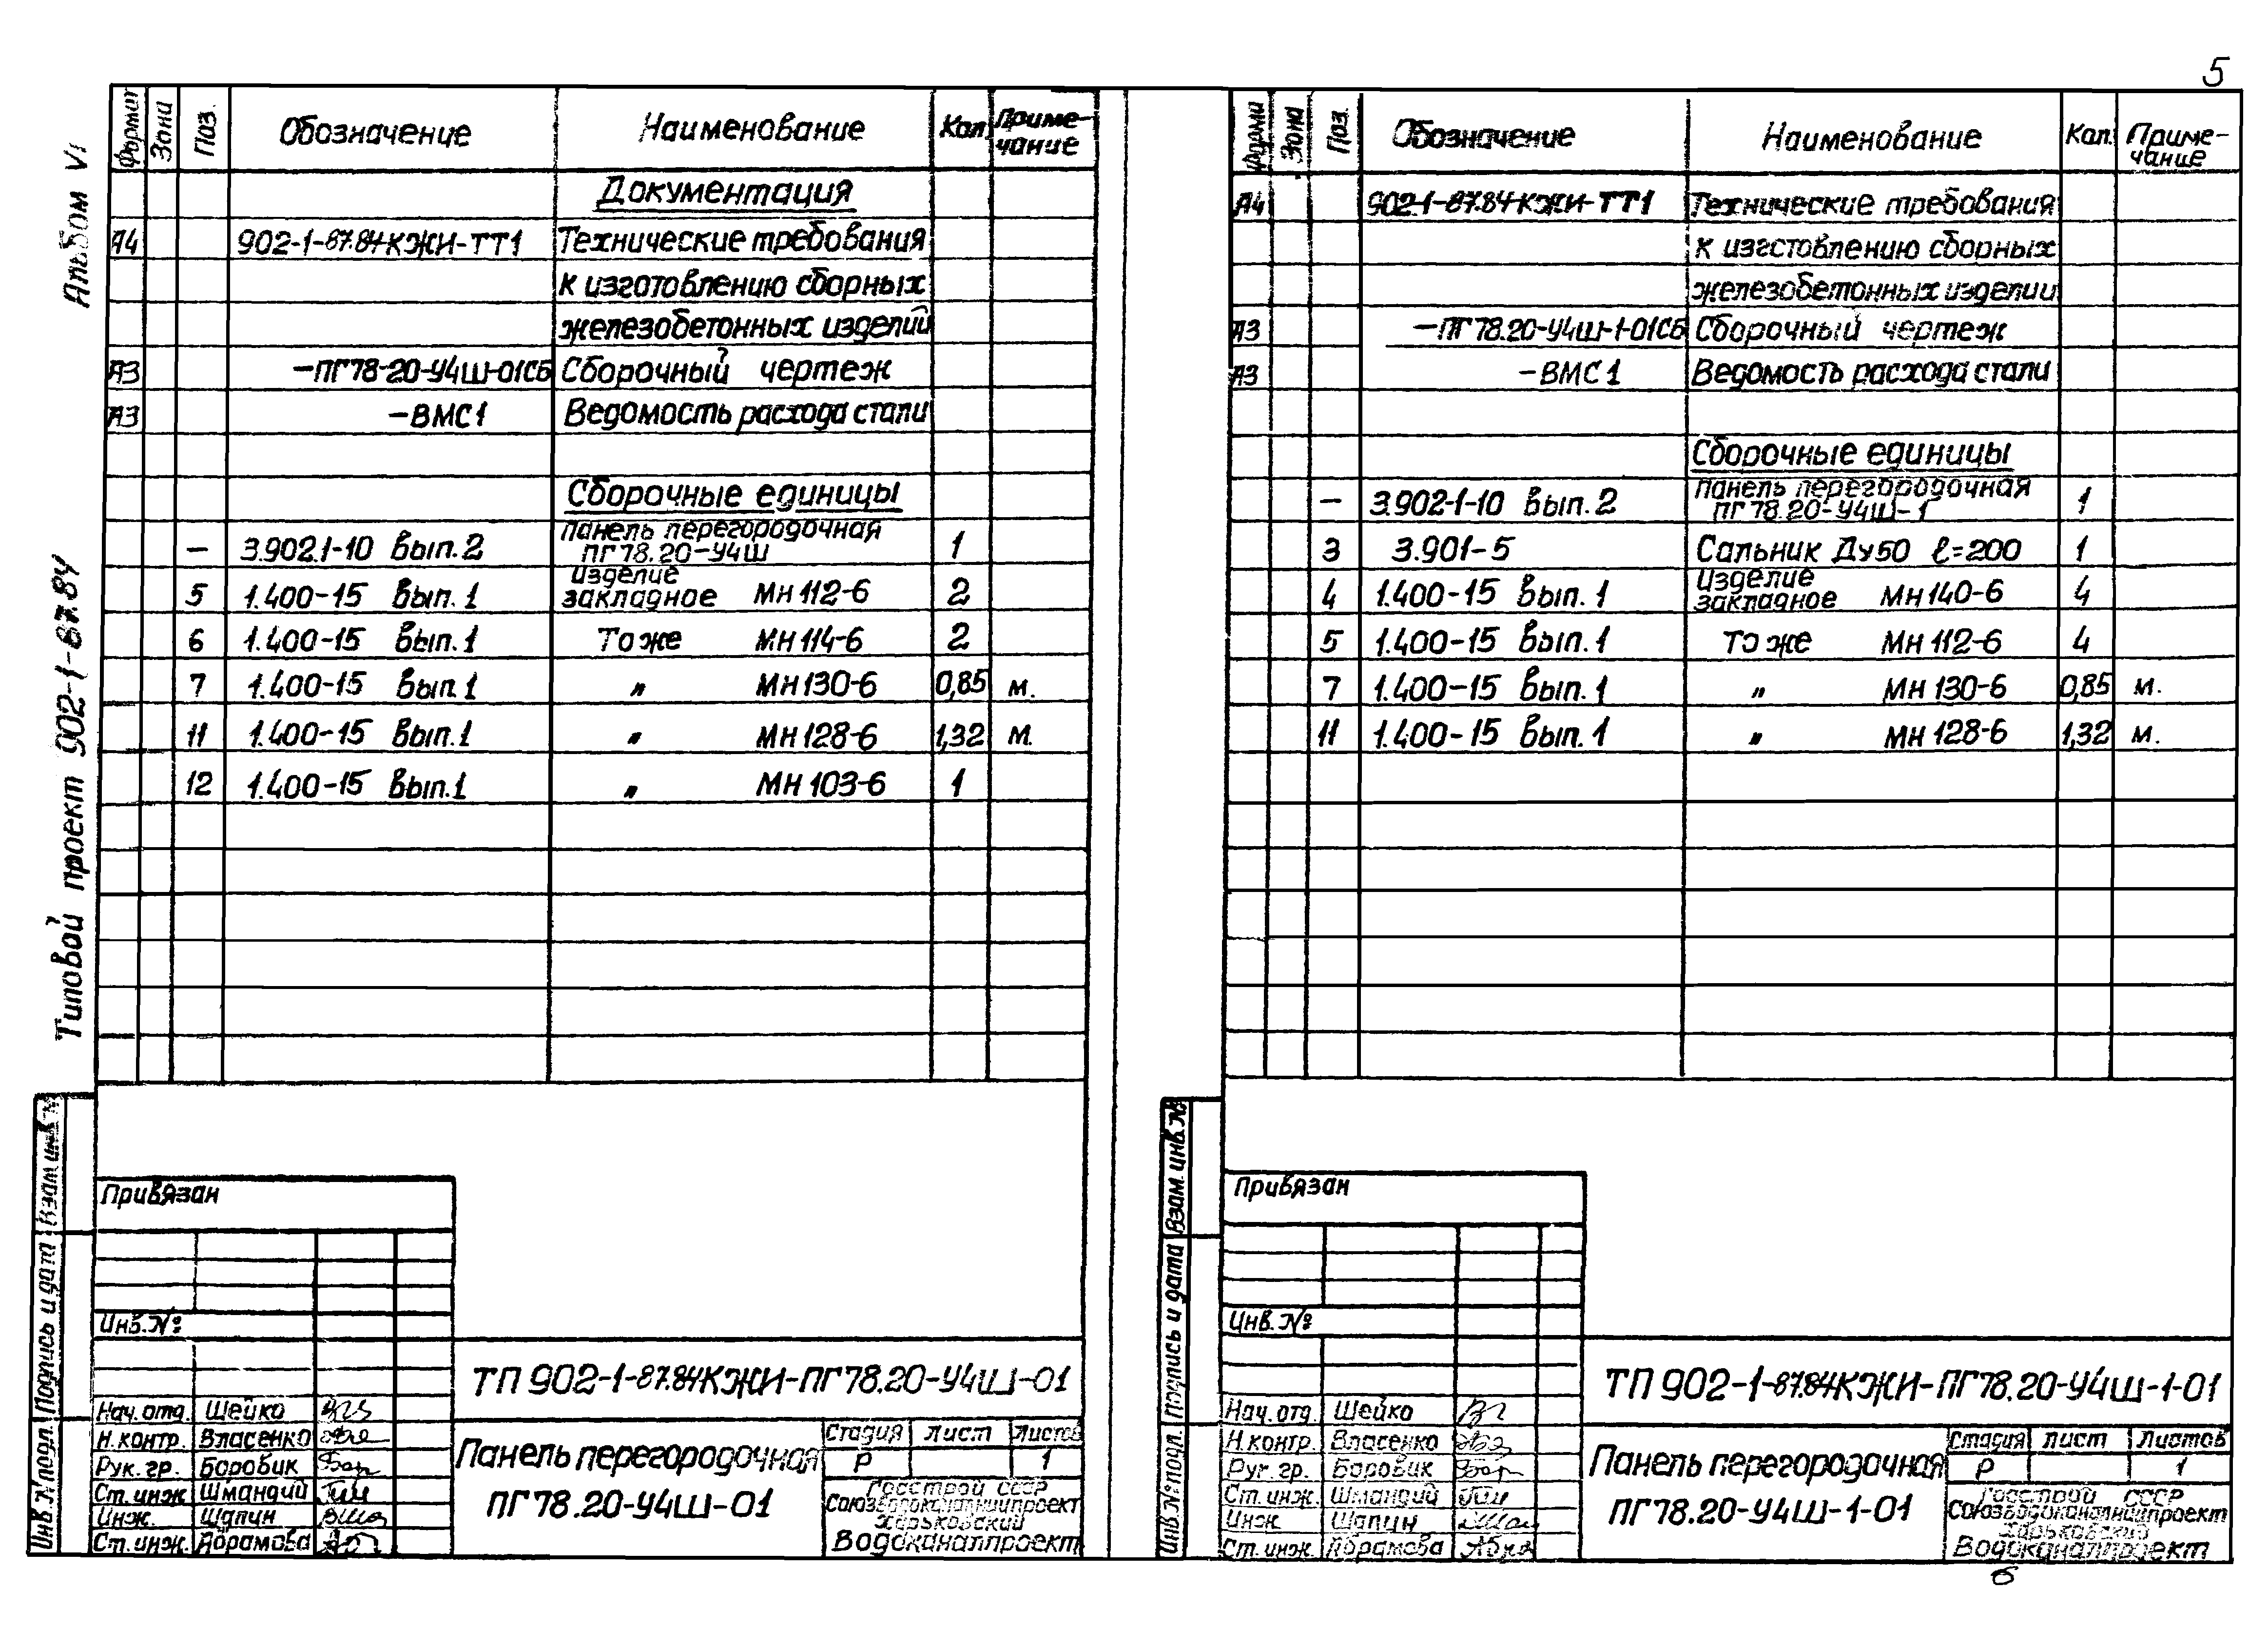 5
Альбом VI
Типовой проект 902-1-87.84
Формат Зона Поз. Обозначение Наименование Кол. Примечание
Документация
А4 902-1-87.84КЖИ-ТТ1 Технические требования
к изготовлению сборных
железобетонных изделий
А3 -ПГ78-20-У4Ш-01СБ Сборочный чертеж
А3 -ВМС1 Ведомость расхода стали
Сборочные единицы
— 3.902.1-10 Вып.2 Панель перегородочная
ПГ78.20-У4Ш 1
5 1.400-15 Вып.1 Изделие закладное Мн112-6 2
6 1.400-15 Вып.1 То же Мн114-6 2
7 1.400-15 Вып.1 " Мн130-6 0,85 м.
11 1.400-15 Вып.1 " Мн128-6 1,32 м.
12 1.400-15 Вып.1 " Мн103-6 1
Взам инв №
Подпись и дата
Инв.№ подл.
Привязан
Инв.№
ТП 902-1-87.84КЖИ-ПГ78.20-У4Ш-01
Нач.отд. Шейко
Н.контр. Власенко
Рук.гр. Боровик
Ст.инж. Шмандий
Инж. Шапин
Ст.инж. Абрамова
Панель перегородочная
ПГ78.20-У4Ш-01
Стадия Лист Листов
Р 1
Госстрой СССР
Союзводоканалниипроект
Харьковский
Водоканалпроект
Форма Зона Поз. Обозначение Наименование Кол. Примечание
А4 902-1-87.84КЖИ-ТТ1 Технические требования
к изготовлению сборных
железобетонных изделий
А3 -ПГ78.20-У4Ш-1-01СБ Сборочный чертеж
А3 -ВМС1 Ведомость расхода стали
Сборочные единицы
— 3.902-1-10 Вып.2 Панель перегородочная
ПГ78.20-У4Ш-1 1
3 3.901-5 Сальник Ду50 ℓ=200 1
4 1.400-15 Вып.1 Изделие закладное Мн140-6 4
5 1.400-15 Вып.1 То же Мн112-6 4
7 1.400-15 Вып.1 " Мн130-6 0,85 м.
11 1.400-15 Вып.1 " Мн128-6 1,32 м.
Взам.инв.№
Подпись и дата
Инв.№ подл.
Привязан
Инв.№
ТП 902-1-87.84КЖИ-ПГ78.20-У4Ш-1-01
Нач.отд. Шейко
Н.контр. Власенко
Рук.гр. Боровик
Ст.инж. Шмандий
Инж Шапин
Ст.инж. Абрамова
Панель перегородочная
ПГ78.20-У4Ш-1-01
Стадия Лист Листов
Р 1
Госстрой СССР
Союзводоканалниипроект
Харьковский
Водоканалпроект
6